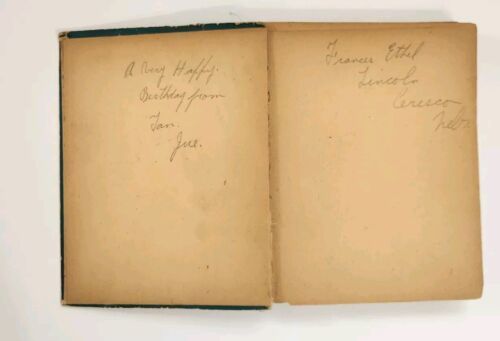 A Very Happy.
Birthday from
Jue.
Frances Ethel
Lincoln
Ceresco
Nebr